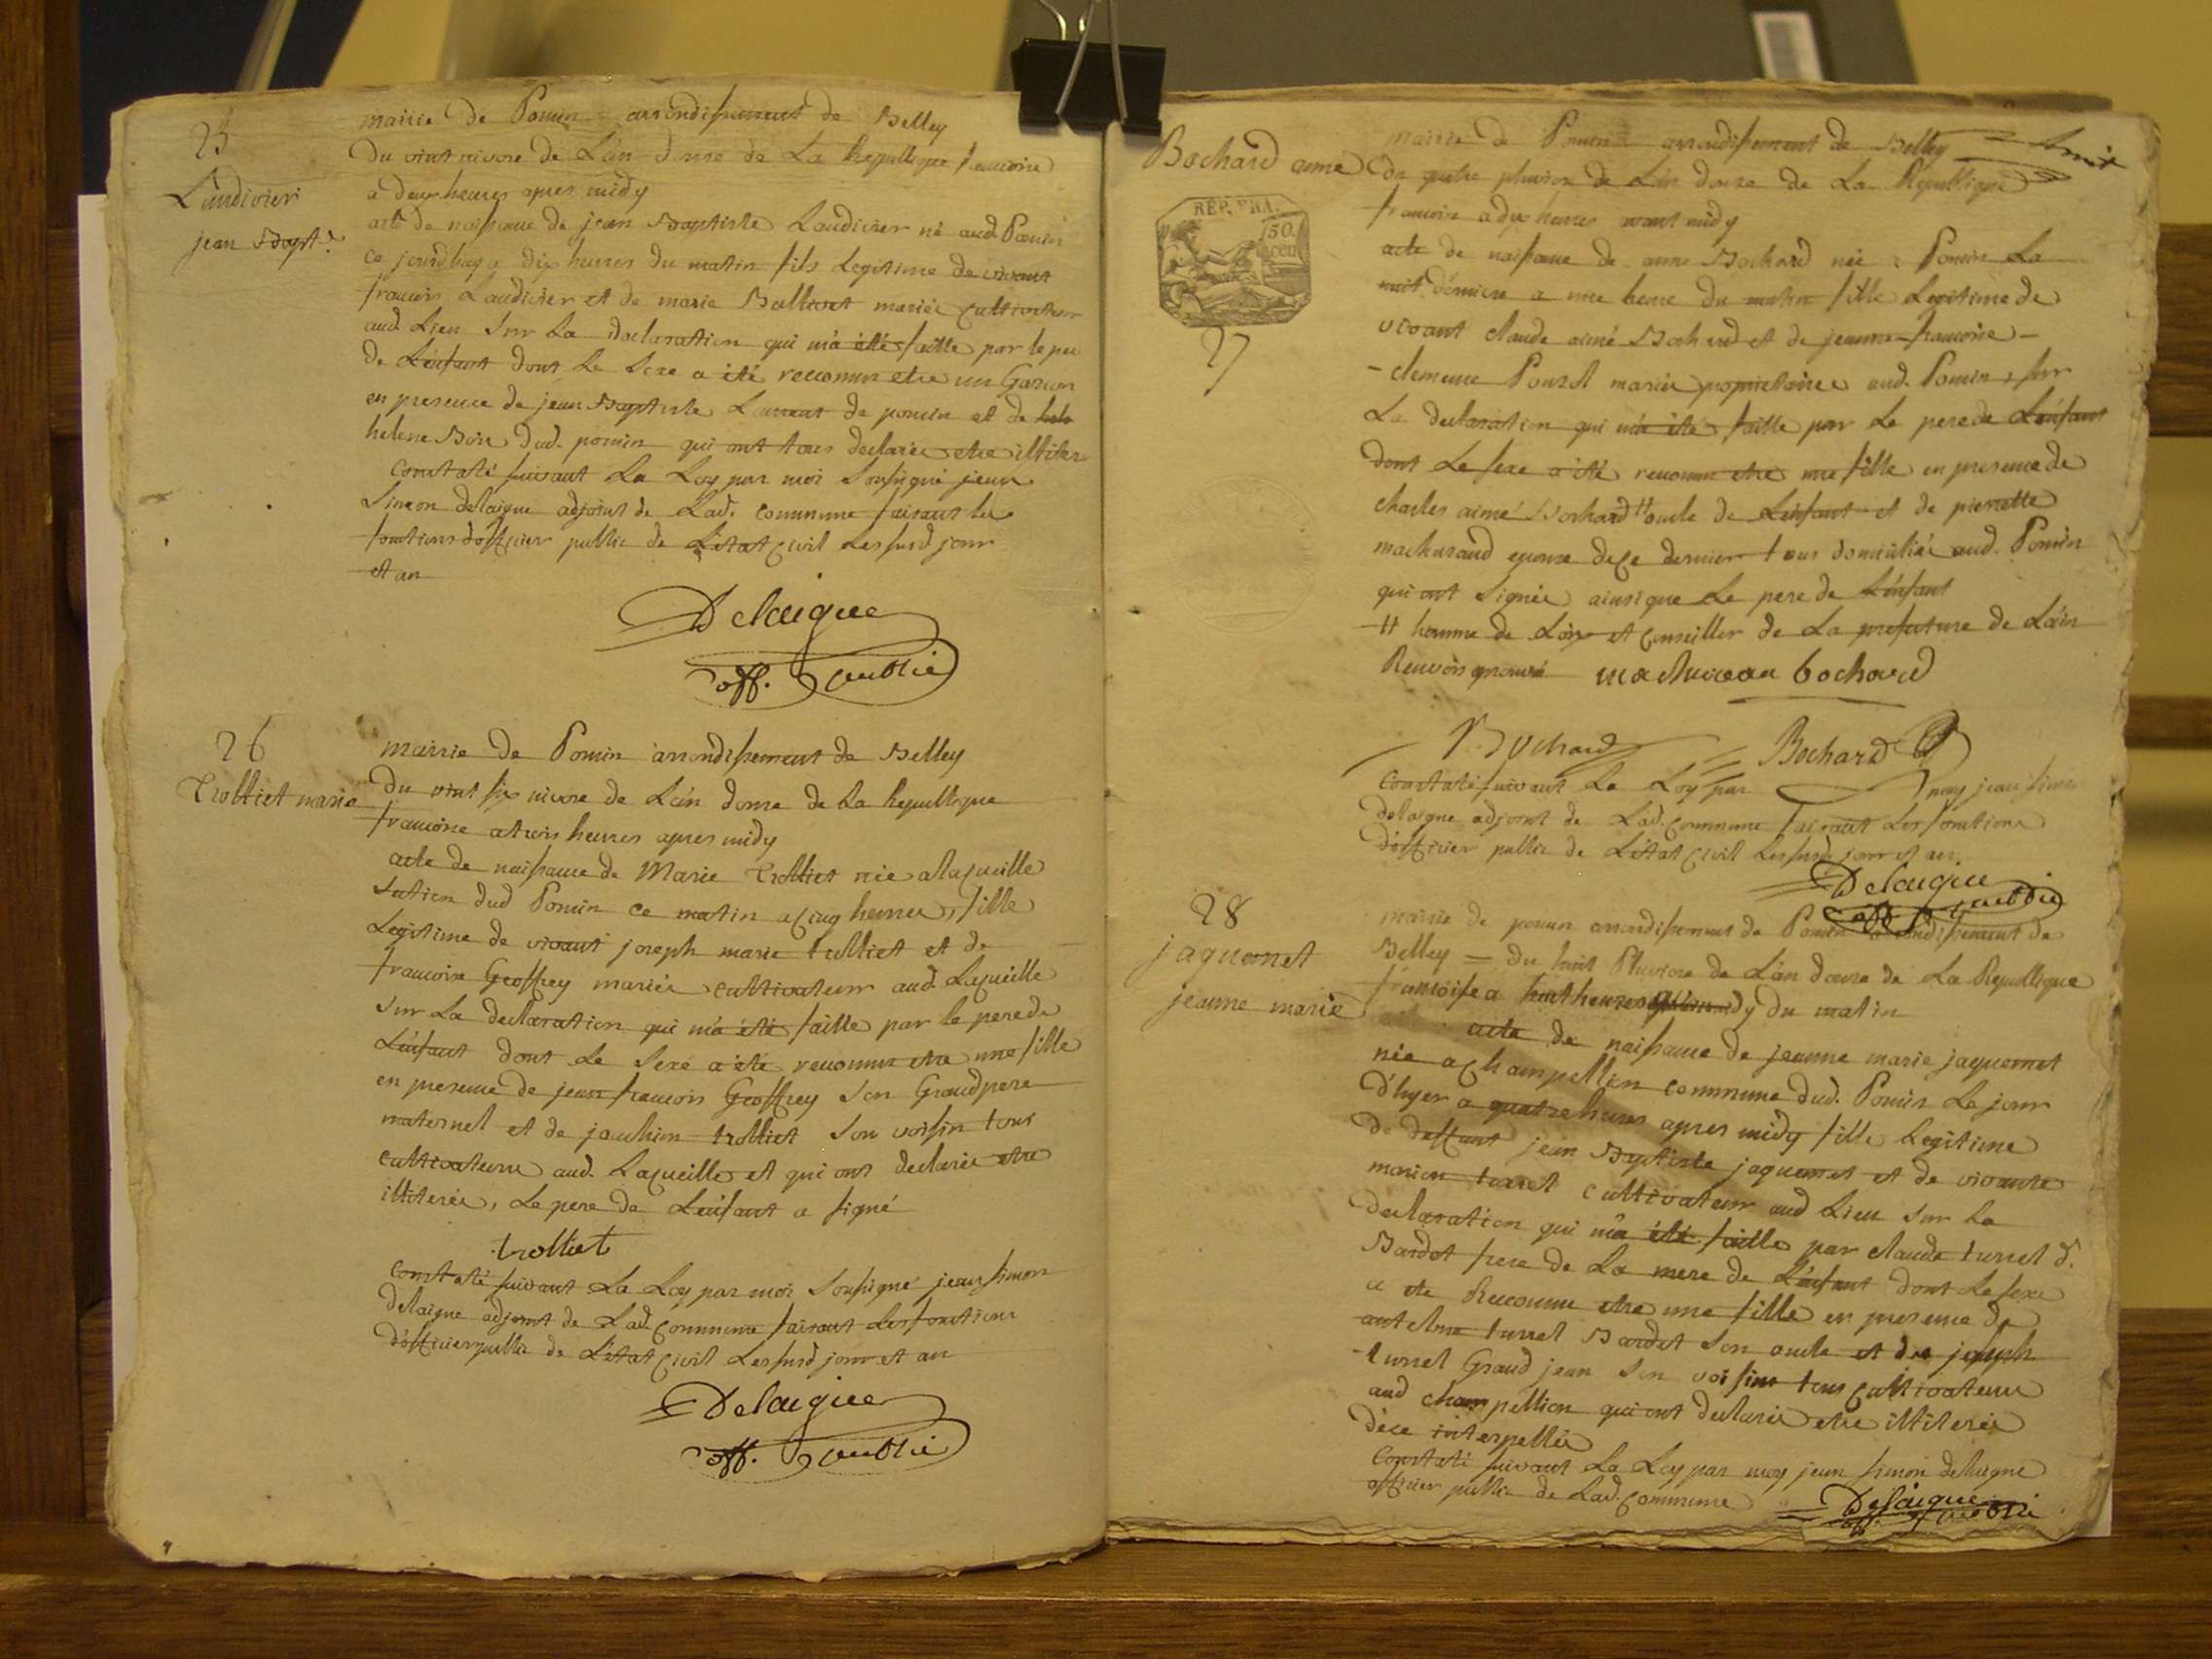 25
Laudivier
jean Bapt.e
mairie de Poncin arrondissement de Belley
Du vint nivose de L'an douse de La Republique francoise
a deux heures apres midy
acte de naissance de jean Baptiste Laudivier né aud. Poncin
ce jourdhuy a dix heures du matin fils Legitime de vivant
francois Laudivier et de marie mariés cultivateurs
aud. Lieu sur La declaration qui m'a été faitte par le pere
de L'enfant dont Le sexe a été reconnu etre un Garcon
en presence de jean Baptiste Laurent de poncin et de
helene dud. poncin qui ont tous declarés etre illiterés
Constaté suivant La Loy par moi Soussigné jean
Simon delaigue adjoint de Lad. commune faisant les
fonctions d'officier public de L'état civil Les susd jour
et an
Delaigue
off. public
26
Trolliet marie
mairie de Poncin arrondissement de Belley
Du vint six nivose de L'an douse de La Republique
francoise a trois heures apres midy
acte de naissance de Marie Trolliet née a Lacueille
Section dud Poncin ce matin a cinq heures, fille
Legitime de vivant joseph marie trolliet et de
francoise Geoffrey mariés cultivateurs aud. Lacueille
sur La declaration qui m'a été faitte par le pere de
L'enfant dont Le Sexe a été reconnu etre une fille
en presence de jean francois Geoffrey Son Grand pere
maternel et de joachim trolliet Son voisin tous
cultivateurs aud. Lacueille et qui ont declarés etre
illiterés, Le pere de L'enfant a signé
trolliet
Constaté suivant La Loy par moi Soussigné jean simon
delaigue adjoint de Lad. commune faisant Les fonctions
d'officier public de L'état civil Les susd jour et an
Delaigue
off. public
Bochard anne
REP. FRA.
50.
cen
27
mairie de Poncin arrondissement de Belley
Du quatre pluviose de L'an douse de La Republique
francoise a dix heures avant midy
acte de naissance de anne Bochard née a Poncin La
nuit derniere a une heure du matin fille Legitime de
vivant claude aimé Bochard et de jeanne francoise
clemence mariés proprietaires aud. Poncin, sur
La declaration qui m'a été faitte par Le pere de L'enfant
dont Le sexe a été reconnu etre une fille en presence de
charles aimé Bochard # oncle de L'enfant et de pierrette
machurand epouse de ce dernier tous domiciliés aud. Poncin
qui ont Signés ainsi que Le pere de L'enfant
# homme de Loix et conseiller de La prefecture de L'ain
Renvois aprouvé machurau bochard
Bochard Bochard
Constaté suivant La Loy par moy jean simon
delaigue adjoint de Lad. commune faisant Les fonctions
d'officier public de L'état civil Les susd jour et an.
Delaigue
off. public
28
jaquemet
jeanne marie
mairie de poncin arrondissement de Poncin arrondissement de
Belley = Du huit Pluviose de L'an douse de La Republique
francoise a huit heures du matin
acte de naissance de jeanne marie jaquemet
née a Champeillon commune dud. Poncin Le jour
d'hyer a quatre heures apres midy fille Legitime
de deffunt jean Baptiste jaquemet et de vivante
marion turrel cultivateurs aud Lieu sur La
declaration qui m'a été faitte par claude turrel d.
Bardet frere de La mere de L'enfant dont Le sexe
a été Reconnu etre une fille en presence de
antelme turrel Bardet Son oncle et de joseph
turrel Grand jean Son voisin tous cultivateurs
aud champeillon qui ont declarés etre illiterés
de ce interpellés
Constaté suivant La Loy par moy jean simon delaigue
officier public de Lad. commune
Delaigue
off. public